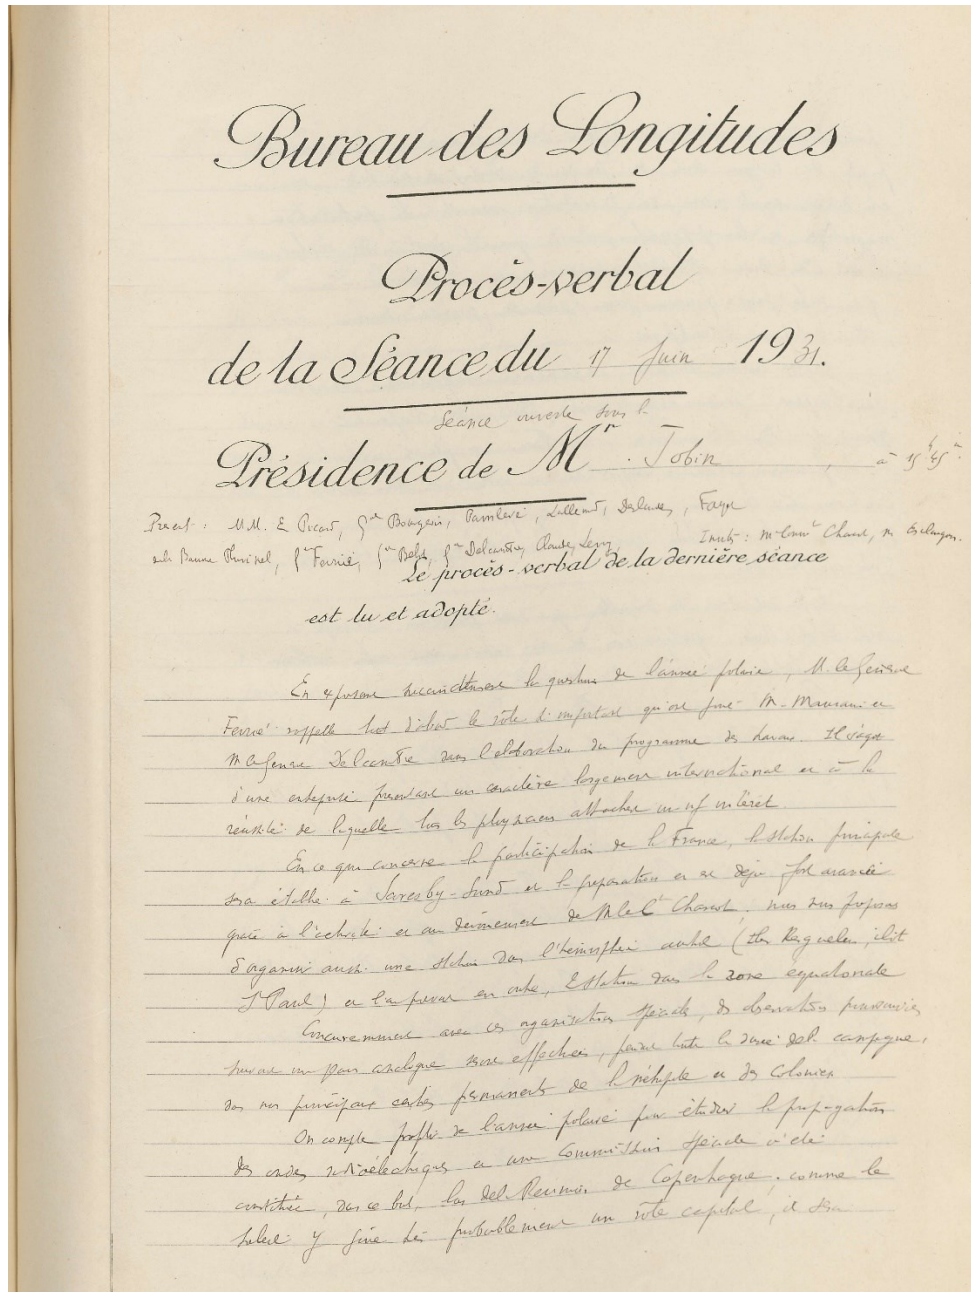 Bureau des Longitudes
Procès-verbal
de la Séance du 17 Juin 1931.
Séance ouverte sous la
Présidence de Mr. Jobin, à 15h45m
Present : MM. E Picard, Gal Bourgeois, Painlevé, Lallemand, Deslandres, Fayet
de la Baume Pluvinel, Gal Ferrié, Gal Bellot, Gal Delcambre, Claude, Levy,
Invités : Mr Charcot, M. Esclangon.
Le procès-verbal de la dernière séance
est lu et adopté.
En exposant succinctement la question de l'année polaire, M. le Général
Ferrié rappelle tout d'abord le rôle important qu'ont joué M. Maurain et
M le General Delcambre dans l'élaboration du programme des travaux. Il s'agit
d'une entreprise présentant un caractère largement international et à la
réussite de laquelle tous les physiciens attachent un vif intérêt.
En ce qui concerne la participation de la France, la station principale
sera établie à Scoresby-Sund et la preparation en est déjà fort avancée
grâce à l'activité et au dévouement de M le Ct Charcot. nous nous proposons
d'organiser aussi une station dans l'hémisphère austral (Iles Kerguelen, ilôt
St Paul) et l'on prévoit en outre, station dans la zone equatoriale
Concurremment avec ces organisations spéciales, des observations poursuivies
suivant un plan analogue seront effectuées, pendant toute la durée de la campagne,
dans nos principaux centres permanents de la métropole et des Colonies
On compte profiter de l'année polaire pour étudier la propagation
des ondes radioélectriques et une Commission spéciale a été
constituée, dans ce but, lors de la Reunion de Copenhague. comme le
soleil y joue très probablement un rôle capital, il sera